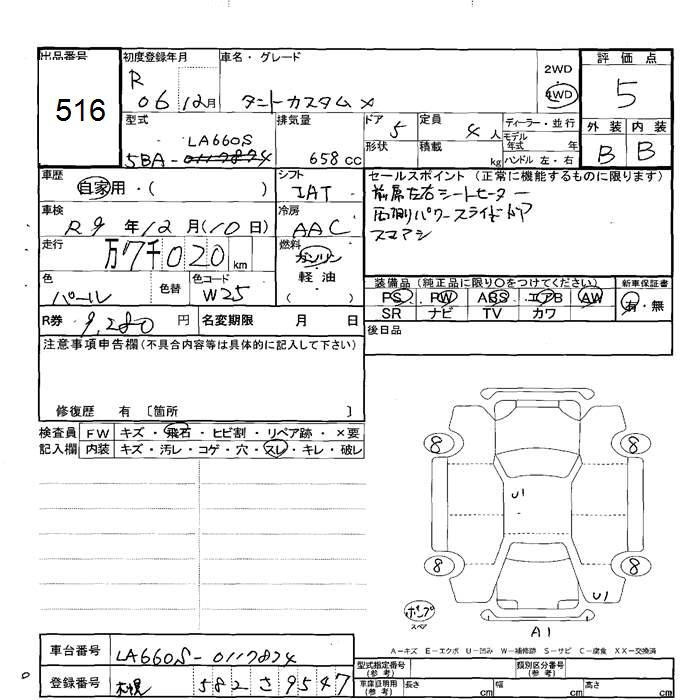 出品番号 初度登録年月 車名・グレード 評価点
516
R
06 12月 タントカスタム X
2WD
4WD
5
型式 排気量 ドア 定員 ディーラー・並行 外装 内装
LA660S
5BA-0117874
658 cc
5
4 人
モデル年式 年
形状 積載 kg ハンドル 左・右
B B
車歴 シフト セールスポイント (正常に機能するものに限ります)
自家用・( ) IAT
前席左右シートヒーター
車検 冷房
R9 年 12 月 (10 日) AAC
両側パワースライドドア
スマアシ
走行 燃料
万7千020 km
ガソリン
軽油
( )
色 色替 色コード
パール W25
装備品 (純正品に限り○をつけてください) 新車保証書
PS PW ABS エアB AW 有・無
SR ナビ TV カワ
R券 9,280 円 名変期限 月 日
後日品
注意事項申告欄 (不具合内容等は具体的に記入して下さい)
修復歴 有 〔箇所 〕
検査員 FW キズ・飛石・ヒビ割・リペア跡・×要
記入欄 内装 キズ・汚レ・コゲ・穴・スレ・キレ・破レ
8 8
U1
8 8
U1
ポンプ
スペア
A1
A−キズ E−エクボ U−凹み W−補修跡 S−サビ C−腐食 XX−交換済
車台番号 LA660S-0117874
型式指定番号 (参考) 類別区分番号 (参考)
登録番号 札幌 582 さ 9547
車庫証明用 (参考) 長さ cm 幅 cm 高さ cm